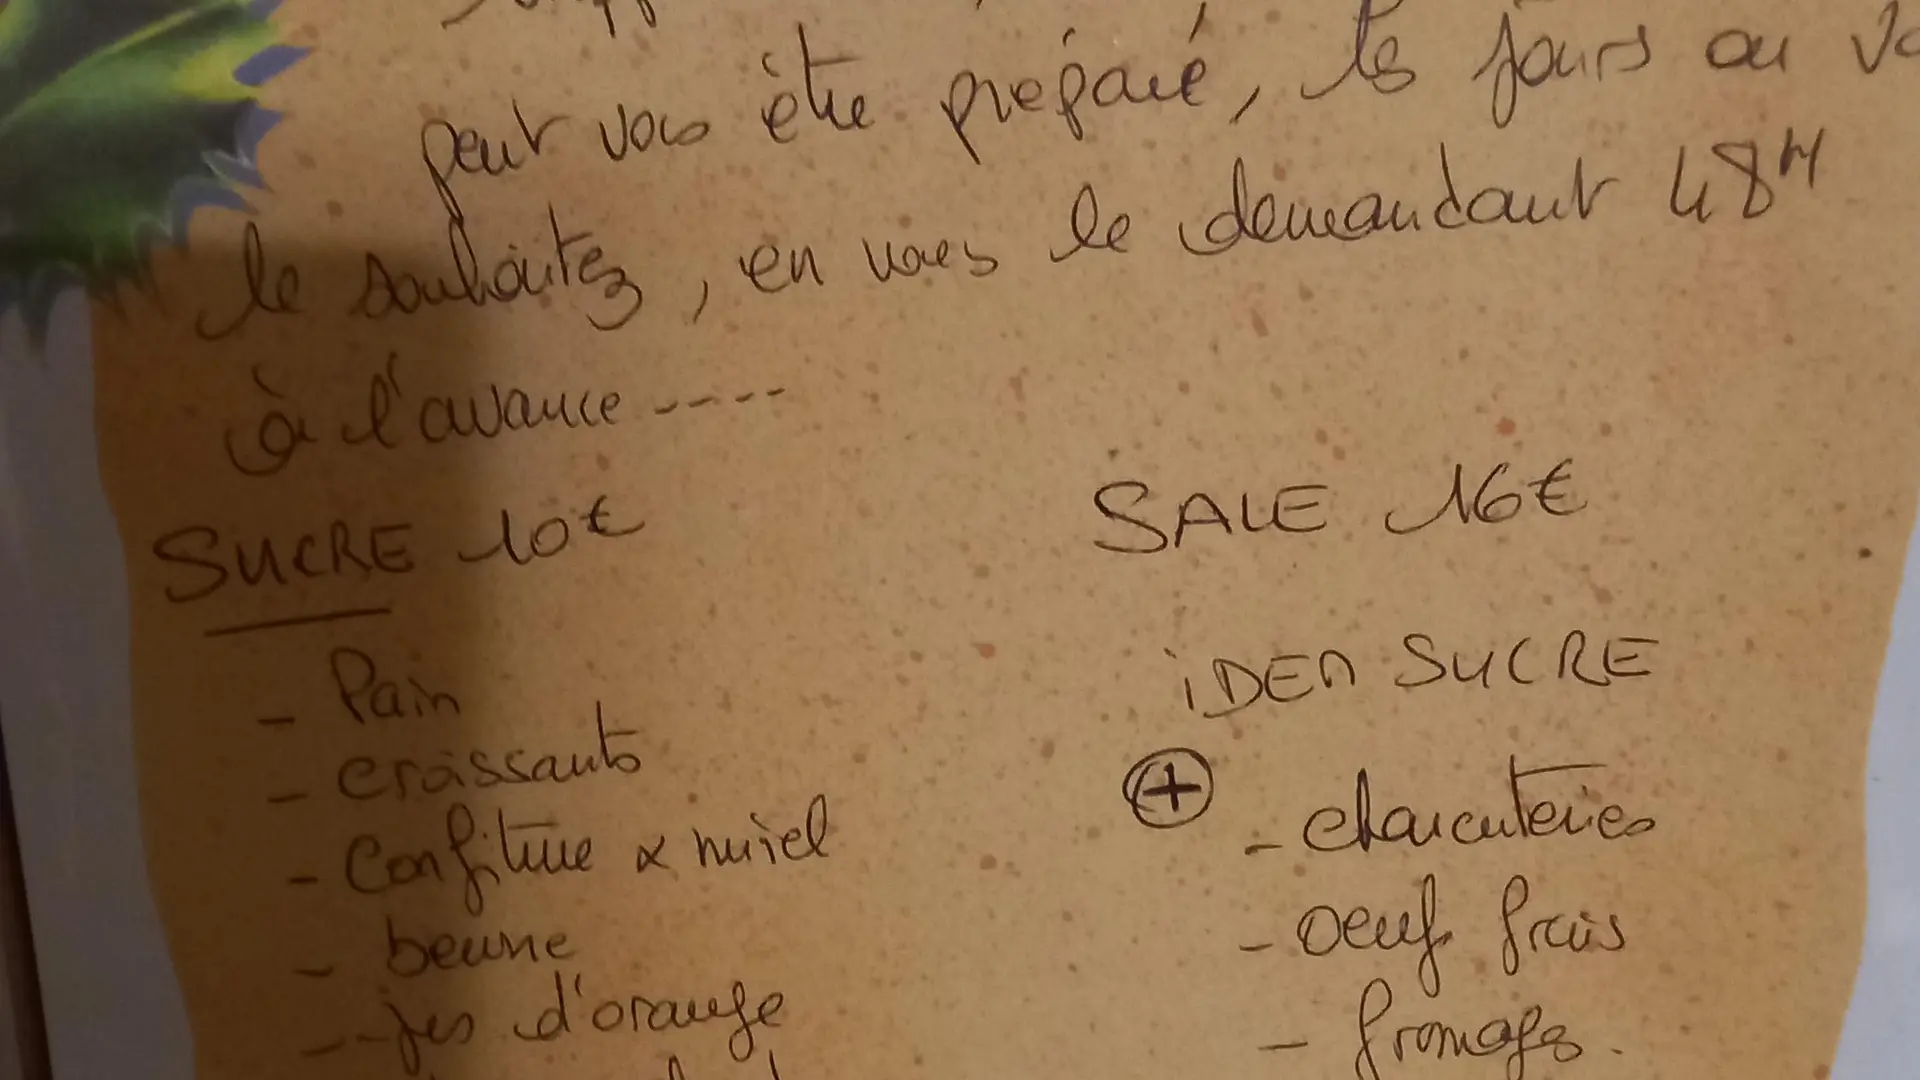 peut vous être préparé, les jours ou vo
le souhaitez, en nous le demandant 48H
à l'avance ----
SUCRE 10€
SALE 16€
- Pain
- croissants
- Confiture & miel
- beurre
- jus d'orange
iDEM SUCRE
⊕ - charcuteries
- oeuf frais
- fromages.